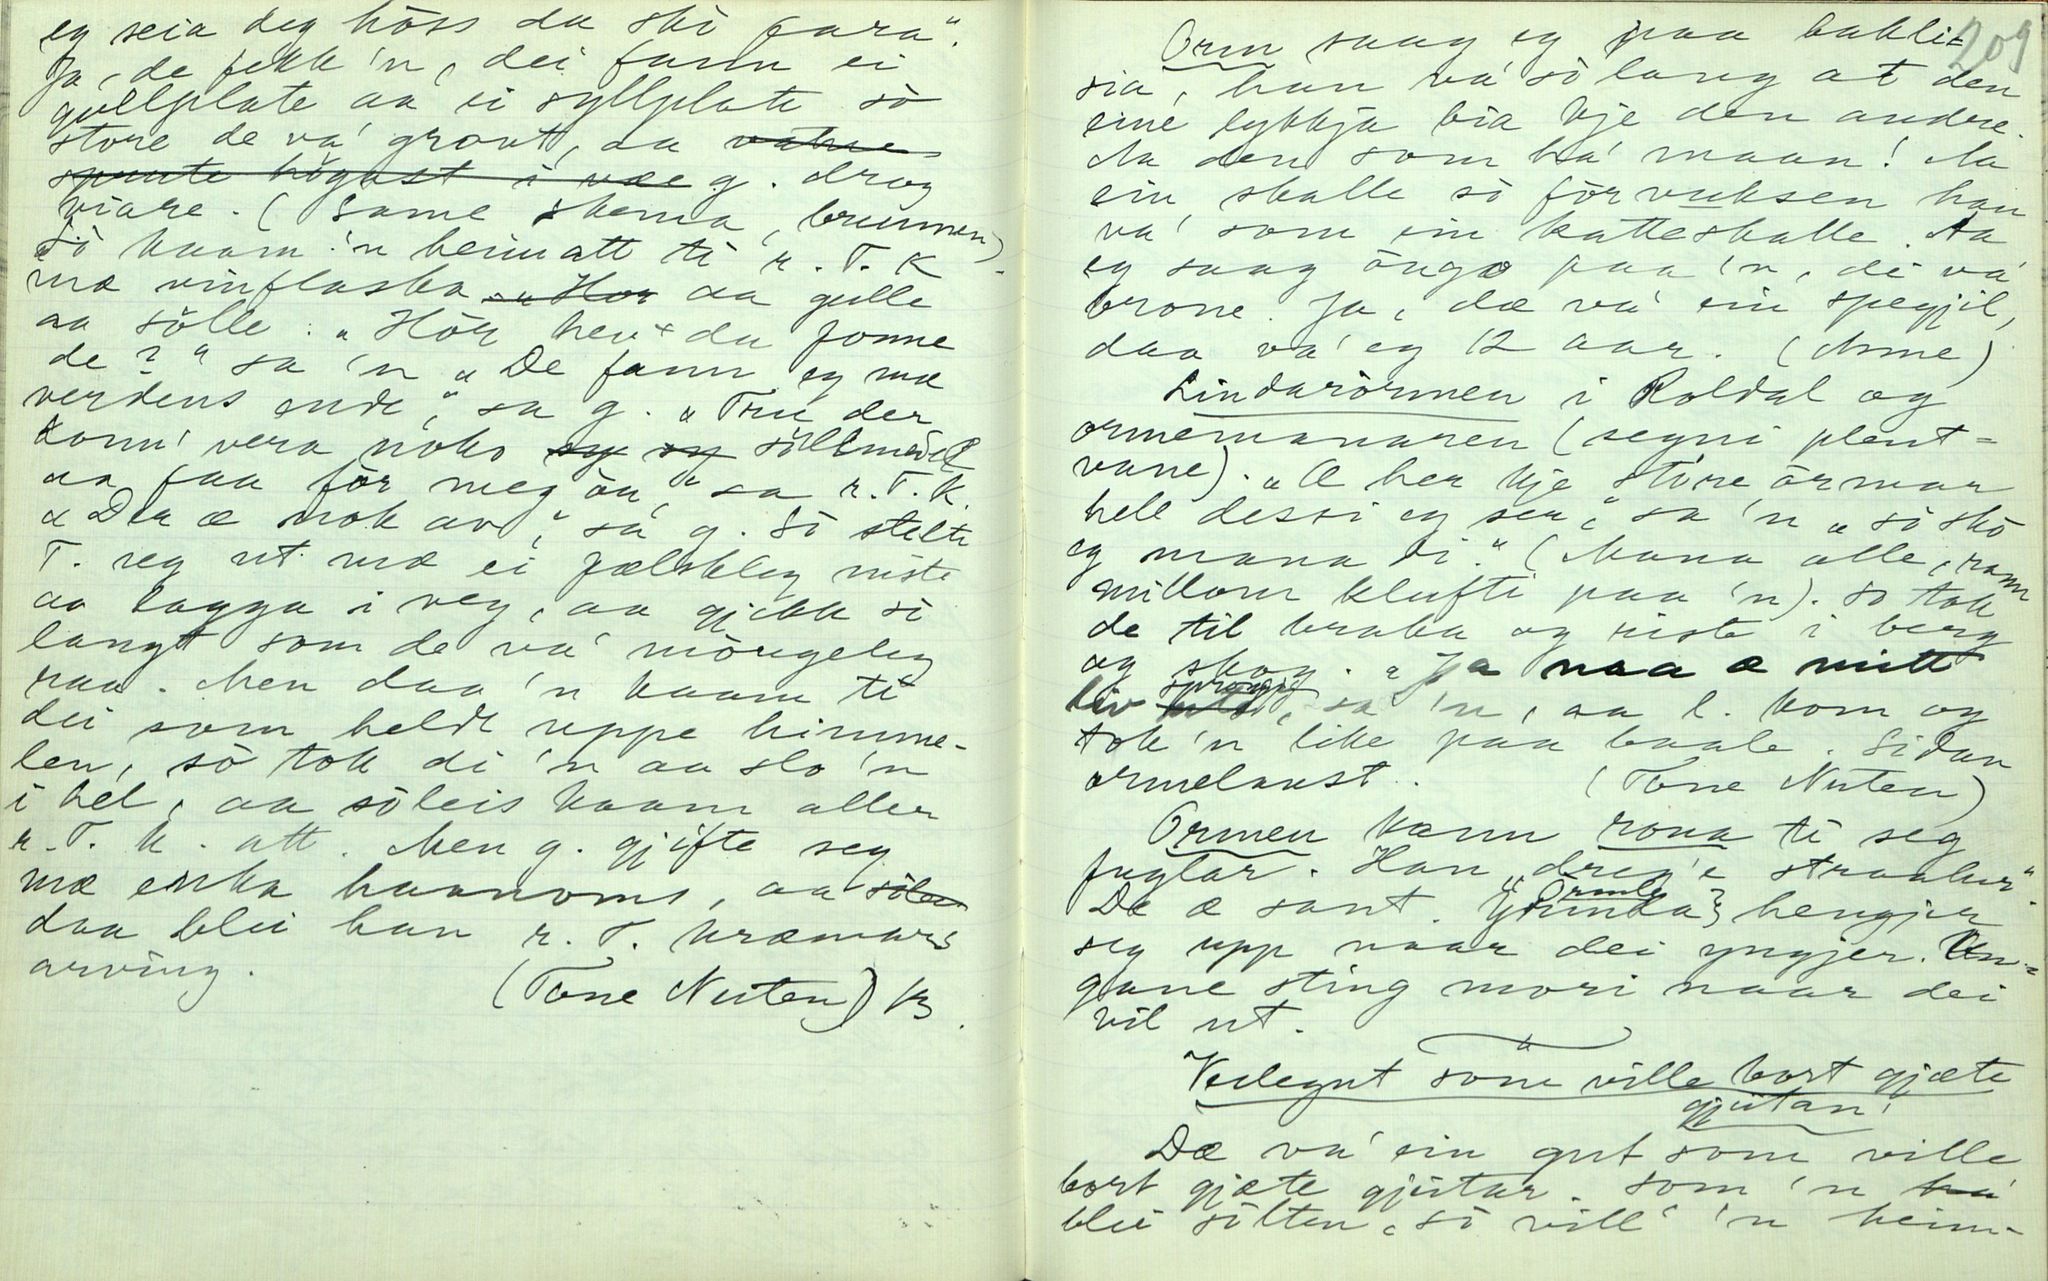 eg seia deg höss du ski fara".
Ja, de fekk 'n, dei fann ei
gullplate aa ei syllplate so
store de va' grovt, aa vatne
sprute högast i væ g. drog
viare. (Same skema, brunnen).
Sò kaam 'n heimatt ti r. T. K
mæ vinflaska aa gulle
aa sölle. "Hör hev du fonne
de?" sa 'n "De fann eg mæ
verdens ende", sa g. "Tru der
konn' vera noko söllmedel
aa faa för meg òu," sa r. T. K.
"Der æ nok av," sa g. Sò stelte
T. seg ut mæ ei fælskleg niste
aa lagga i veg, aa gjekk sò
langt som de va' möugeleg
raa. Men daa 'n kaam ti
dei som heldt uppe himme-
len, sò tok di 'n aa slo 'n
i hel, aa söleis kaam aller
r. T. K. att. Men g. gjifte seg
mæ enka haanoms, aa
daa blei han r. T. Kræmars
arving.
(Tone Nuten)
209
Orm saag eg paa bakli=
sia, han va' sò lang at den
eine lykkja bia kje den andre.
Aa den som ha' maan! Aa
ein skalle sò förvuksen han
va' som ein katteskalle. Aa
eg saag öugo paa 'n, di va'
brone. Ja, dæ va' ein spegjil,
daa va' eg 12 aar. (Anne)
Lindarörmen i Roldal og
ormemanaren (segni plent=
vane). "Æ her kje större örmar
hell dessi eg ser," sa 'n "sò skò
eg mana di." (Mana alle, rann
millom klufti paa 'n). So tok
de til braka og riste i berg
og skog. "Ja naa æ mitt
liv sprongje, sa 'n, aa l. kom og
tok 'n like paa baale. Sidan
ormelaust. (Tone Nuten)
Ormen kann rona ti seg
fuglar. Han "dreg'e straaken".
De æ sant. Örmly hengjer
seg upp naar dei yngjer. Un-
gane sting mori naar dei
vil ut.
Vedlegut som ville bort gjæte
gjeitan'
Dæ va' ein gut som ville
bort gjæte gjeitar. Som 'n ha'
blei sölten, sò vill' 'n heim-